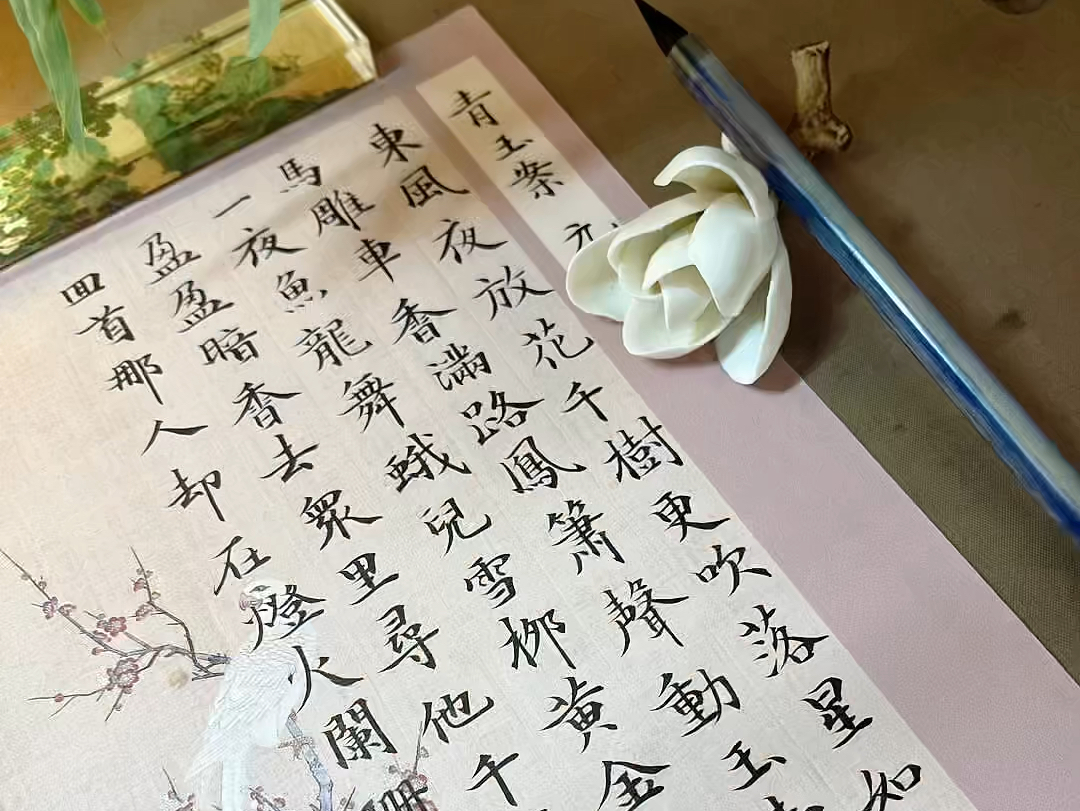 青玉案 元
東風夜放花千樹更吹落星如
馬雕車香滿路鳳簫聲動玉
一夜魚龍舞蛾兒雪柳黃金
盈盈暗香去眾里尋他千
回首那人却在燈火闌珊